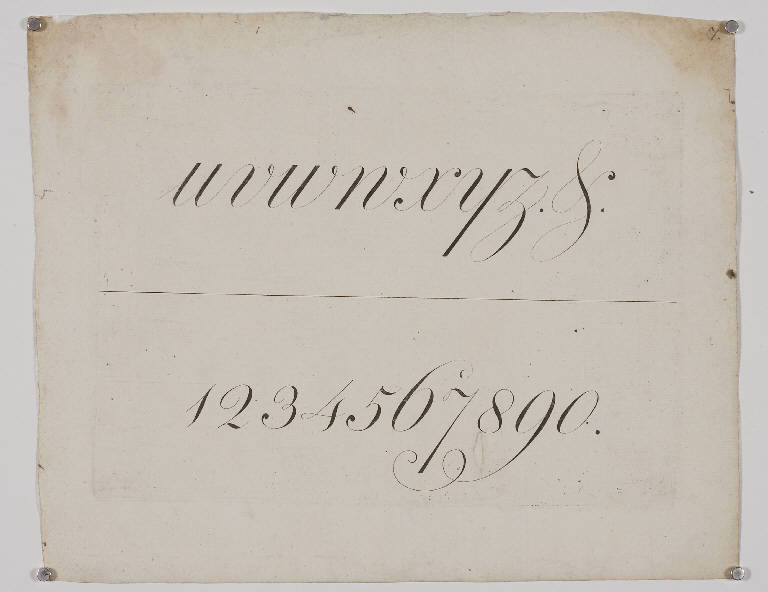 uvwwxyz.&.
1234567890.